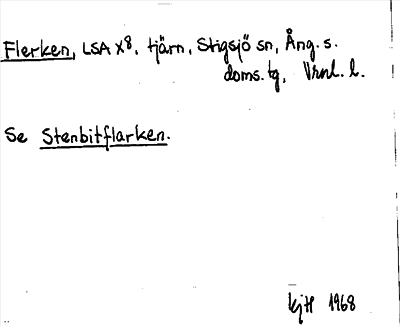 Flerken, LSA X8, tjärn, Stigsjö sn, Ång. s.
doms. tg, Vrnl. l.
Se Stenbitflarken.
kjH 1968